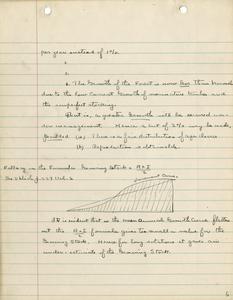 per year instead of 1%.
2.
3.
4. The Growth of the Forest is now less than normal
due to the low Current Growth of nonmature timber and
the imperfect stocking.
That is, a greater Growth will be secured under
management. Hence a cut of 2% may be made,
Provided (a) There is a fair distribution of age classes
(b) Reproduction is obtainable.
Fallacy in the Formula Growing Stock =
Current Curve
It is evident that as the mean Annual Growth Curve flattens
out the formula gives too small a value for the
Growing Stock. Hence for long rotations it gives an
under-estimate of the Growing Stock.
6